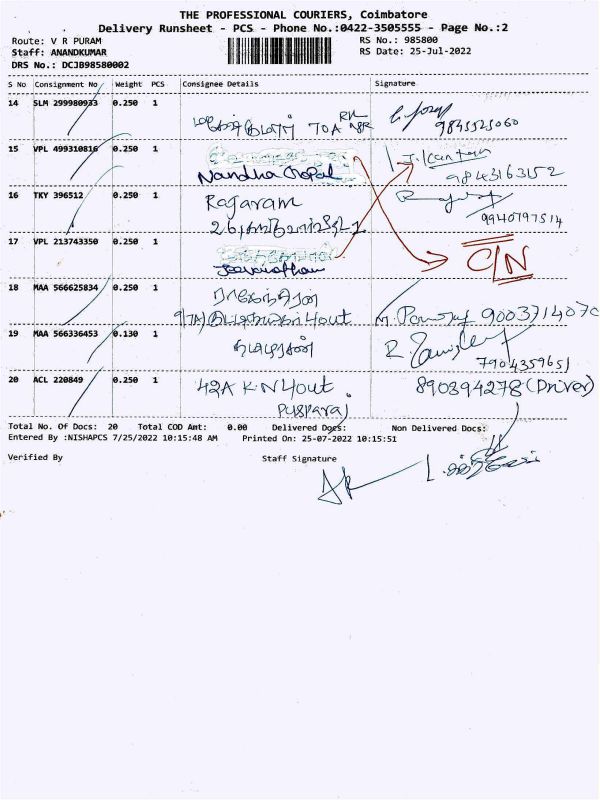 THE PROFESSIONAL COURIERS, Coimbatore
Delivery Runsheet - PCS - Phone No.:0422-3505555 - Page No.:2
Route: V R PURAM
RS No.: 985800
Staff: ANANDKUMAR
RS Date: 25-Jul-2022
DRS No.: DCJB98580002
S No Consignment No Weight PCS Consignee Details Signature
14 SLM 299980933 0.250 1
70A
9845525060
15 VPL 499310816 0.250 1
Nandha Gopal
9843163152
16 TKY 396512 0.250 1
Rajaram
9940797514
17 VPL 213743350 0.250 1
C/N
18 MAA 566625834 0.250 1
ராஜேந்திரன்
4out
9003714070
19 MAA 566336453 0.130 1
7904359651
20 ACL 220849 0.250 1
42A K N 4out.
890394278 (Driver)
Pusparaj
Total No. Of Docs: 20 Total COD Amt: 0.00 Delivered Docs: Non Delivered Docs:
Entered By :NISHAPCS 7/25/2022 10:15:48 AM Printed On: 25-07-2022 10:15:51
Verified By Staff Signature